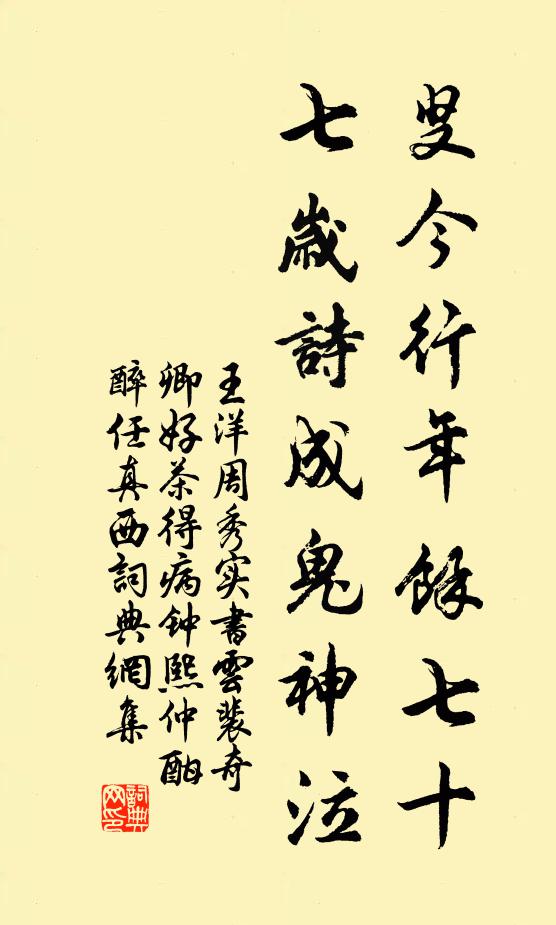 叟今行年餘七十
七歲詩成鬼神泣
王洋周秀实書雲裴奇
卿好茶得病钟熙仲酣
醉任真西詞典網集
詞典网印